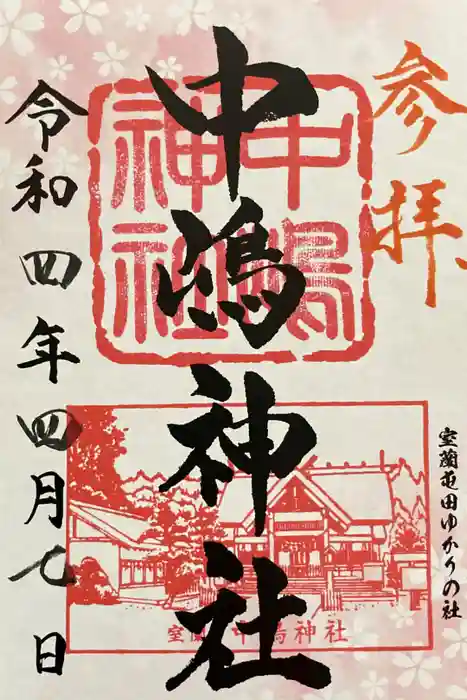 参拝
中嶋神社
中嶋神社
令和四年四月七日
室蘭屯田ゆかりの社
室蘭 中嶋神社